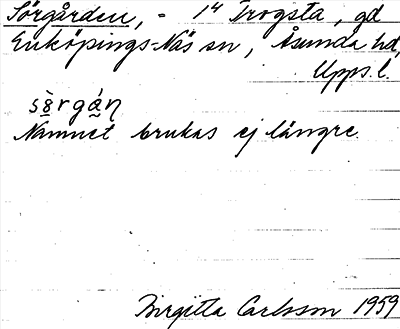 Sörgården, - 1⁴ Trogsta, gd
Enköpings-Näs sn, Åsunda hd,
Upps. l.
Namnet brukas ej längre.
Birgitta Carlsson 1959